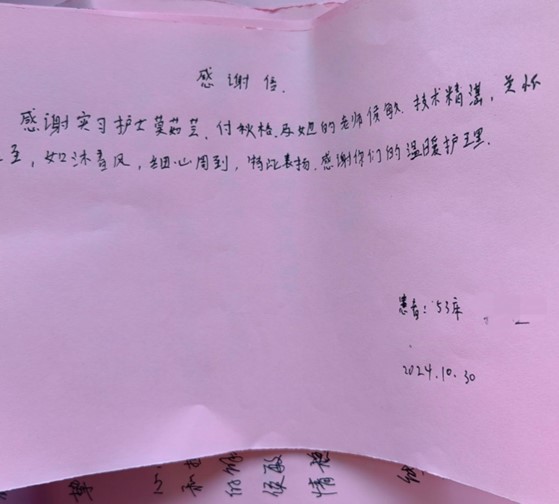 感谢信.
感谢实习护士莫茹芸、付秋格、及她的老师侯敏.技术精湛,关怀
至,如沐春风,细心周到,特此表扬.感谢你们的温暖护理.
患者:53床
2024.10.30
和
们
侯敏
情